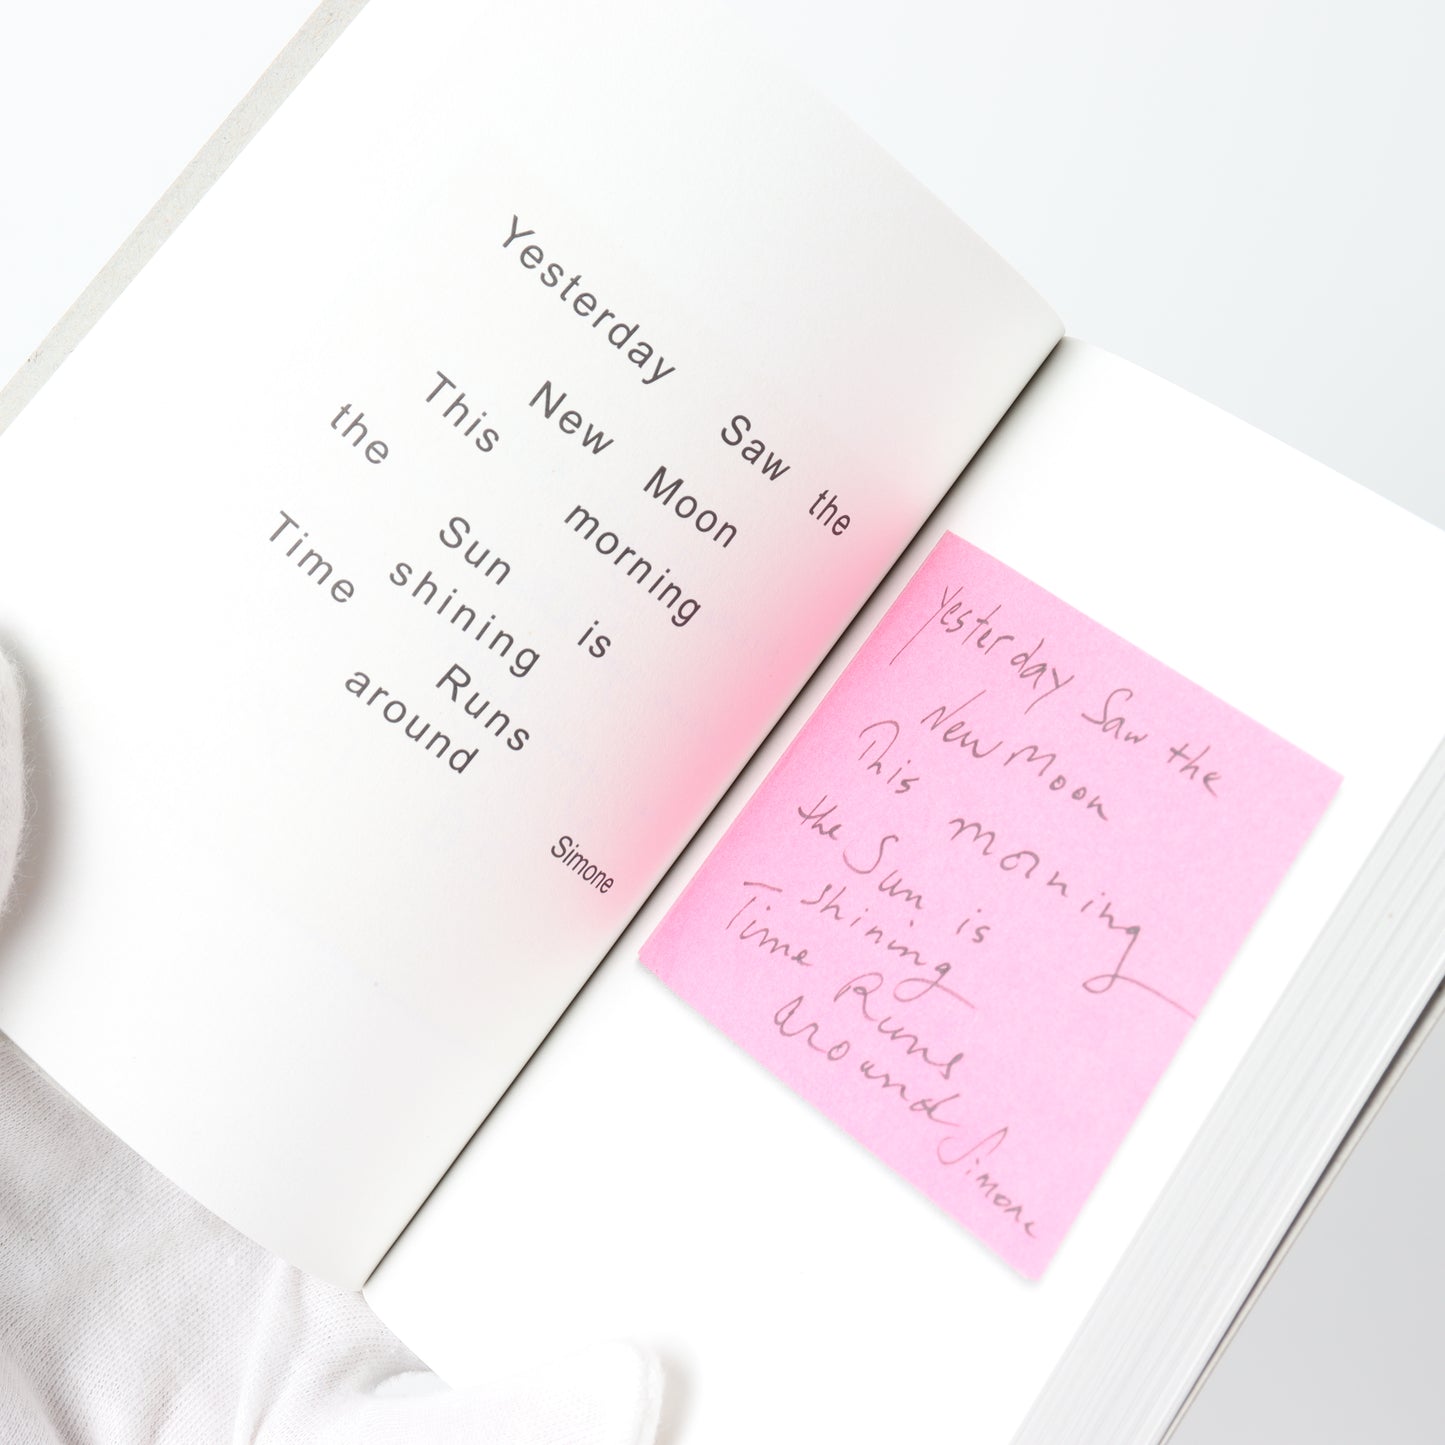 Yesterday Saw the
New Moon
This morning
the Sun is
shining
Time Runs
around
Simone
Yesterday Saw the
New Moon
This morning
the Sun is
shining
Time Runs
around
Simone